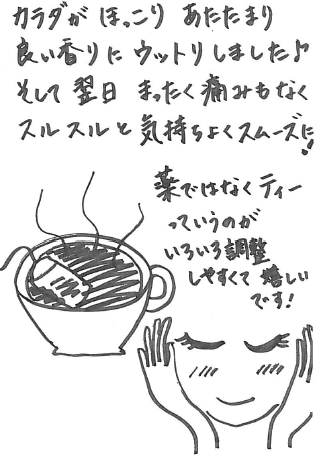 カラダが ほっこり あたたまり
良い香りに ウットリしました♪
そして 翌日 まったく痛みもなく
スルスルと気持ちよくスムーズに!
薬ではなくティー
っていうのが
いろいろ調整
しやすくて 嬉しい
です!